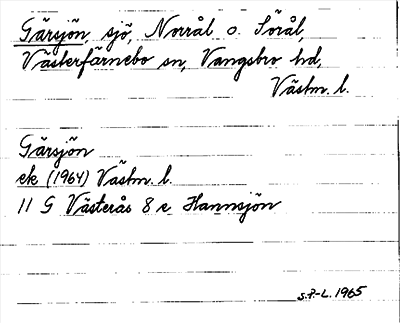 Gärsjön, sjö, Norrål o. Sörål,
Västerfärnebo sn, Vangsbro hd,
Västm. l.
Gärsjön
ek (1964) Västm. l.
11 G Västerås 8 e Hannsjön
S.P-L. 1965